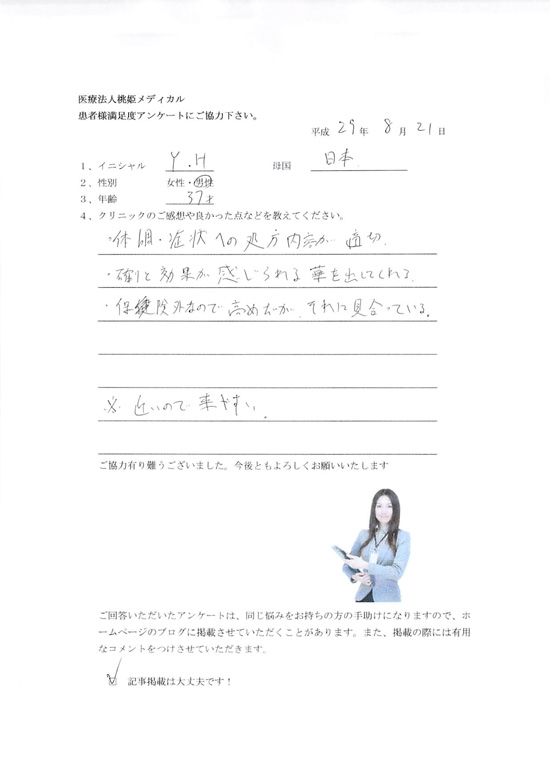 医療法人桃姫メディカル
患者様満足度アンケートにご協力下さい。
平成 29 年 8 月 21 日
1、イニシャル Y.H 母国 日本
2、性別 女性・男性
3、年齢 37才
4、クリニックのご感想や良かった点などを教えてください。
・体調・症状への処方内容が適切.
・確りと効果が感じられる薬を出してくれる.
・保健除外なので高めだが、それに見合っている。
※近いので来やすい.
ご協力有り難うございました。今後ともよろしくお願いいたします
ご回答いただいたアンケートは、同じ悩みをお持ちの方の手助けになりますので、ホ
ームページのブログに掲載させていただくことがあります。また、掲載の際には有用
なコメントをつけさせていただきます。
☑ 記事掲載は大丈夫です！